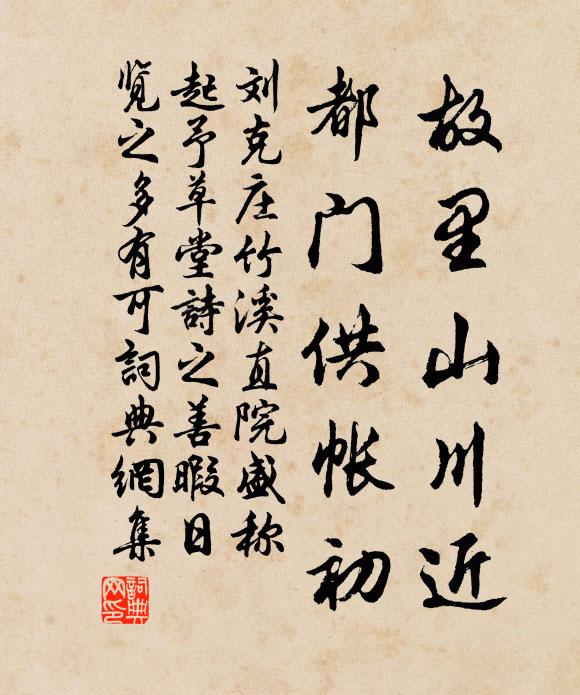 故里山川近
都門供帐初
刘克庄竹溪直院盛称
起予草堂詩之善暇日
览之多有可詞典網集
詞典
网印